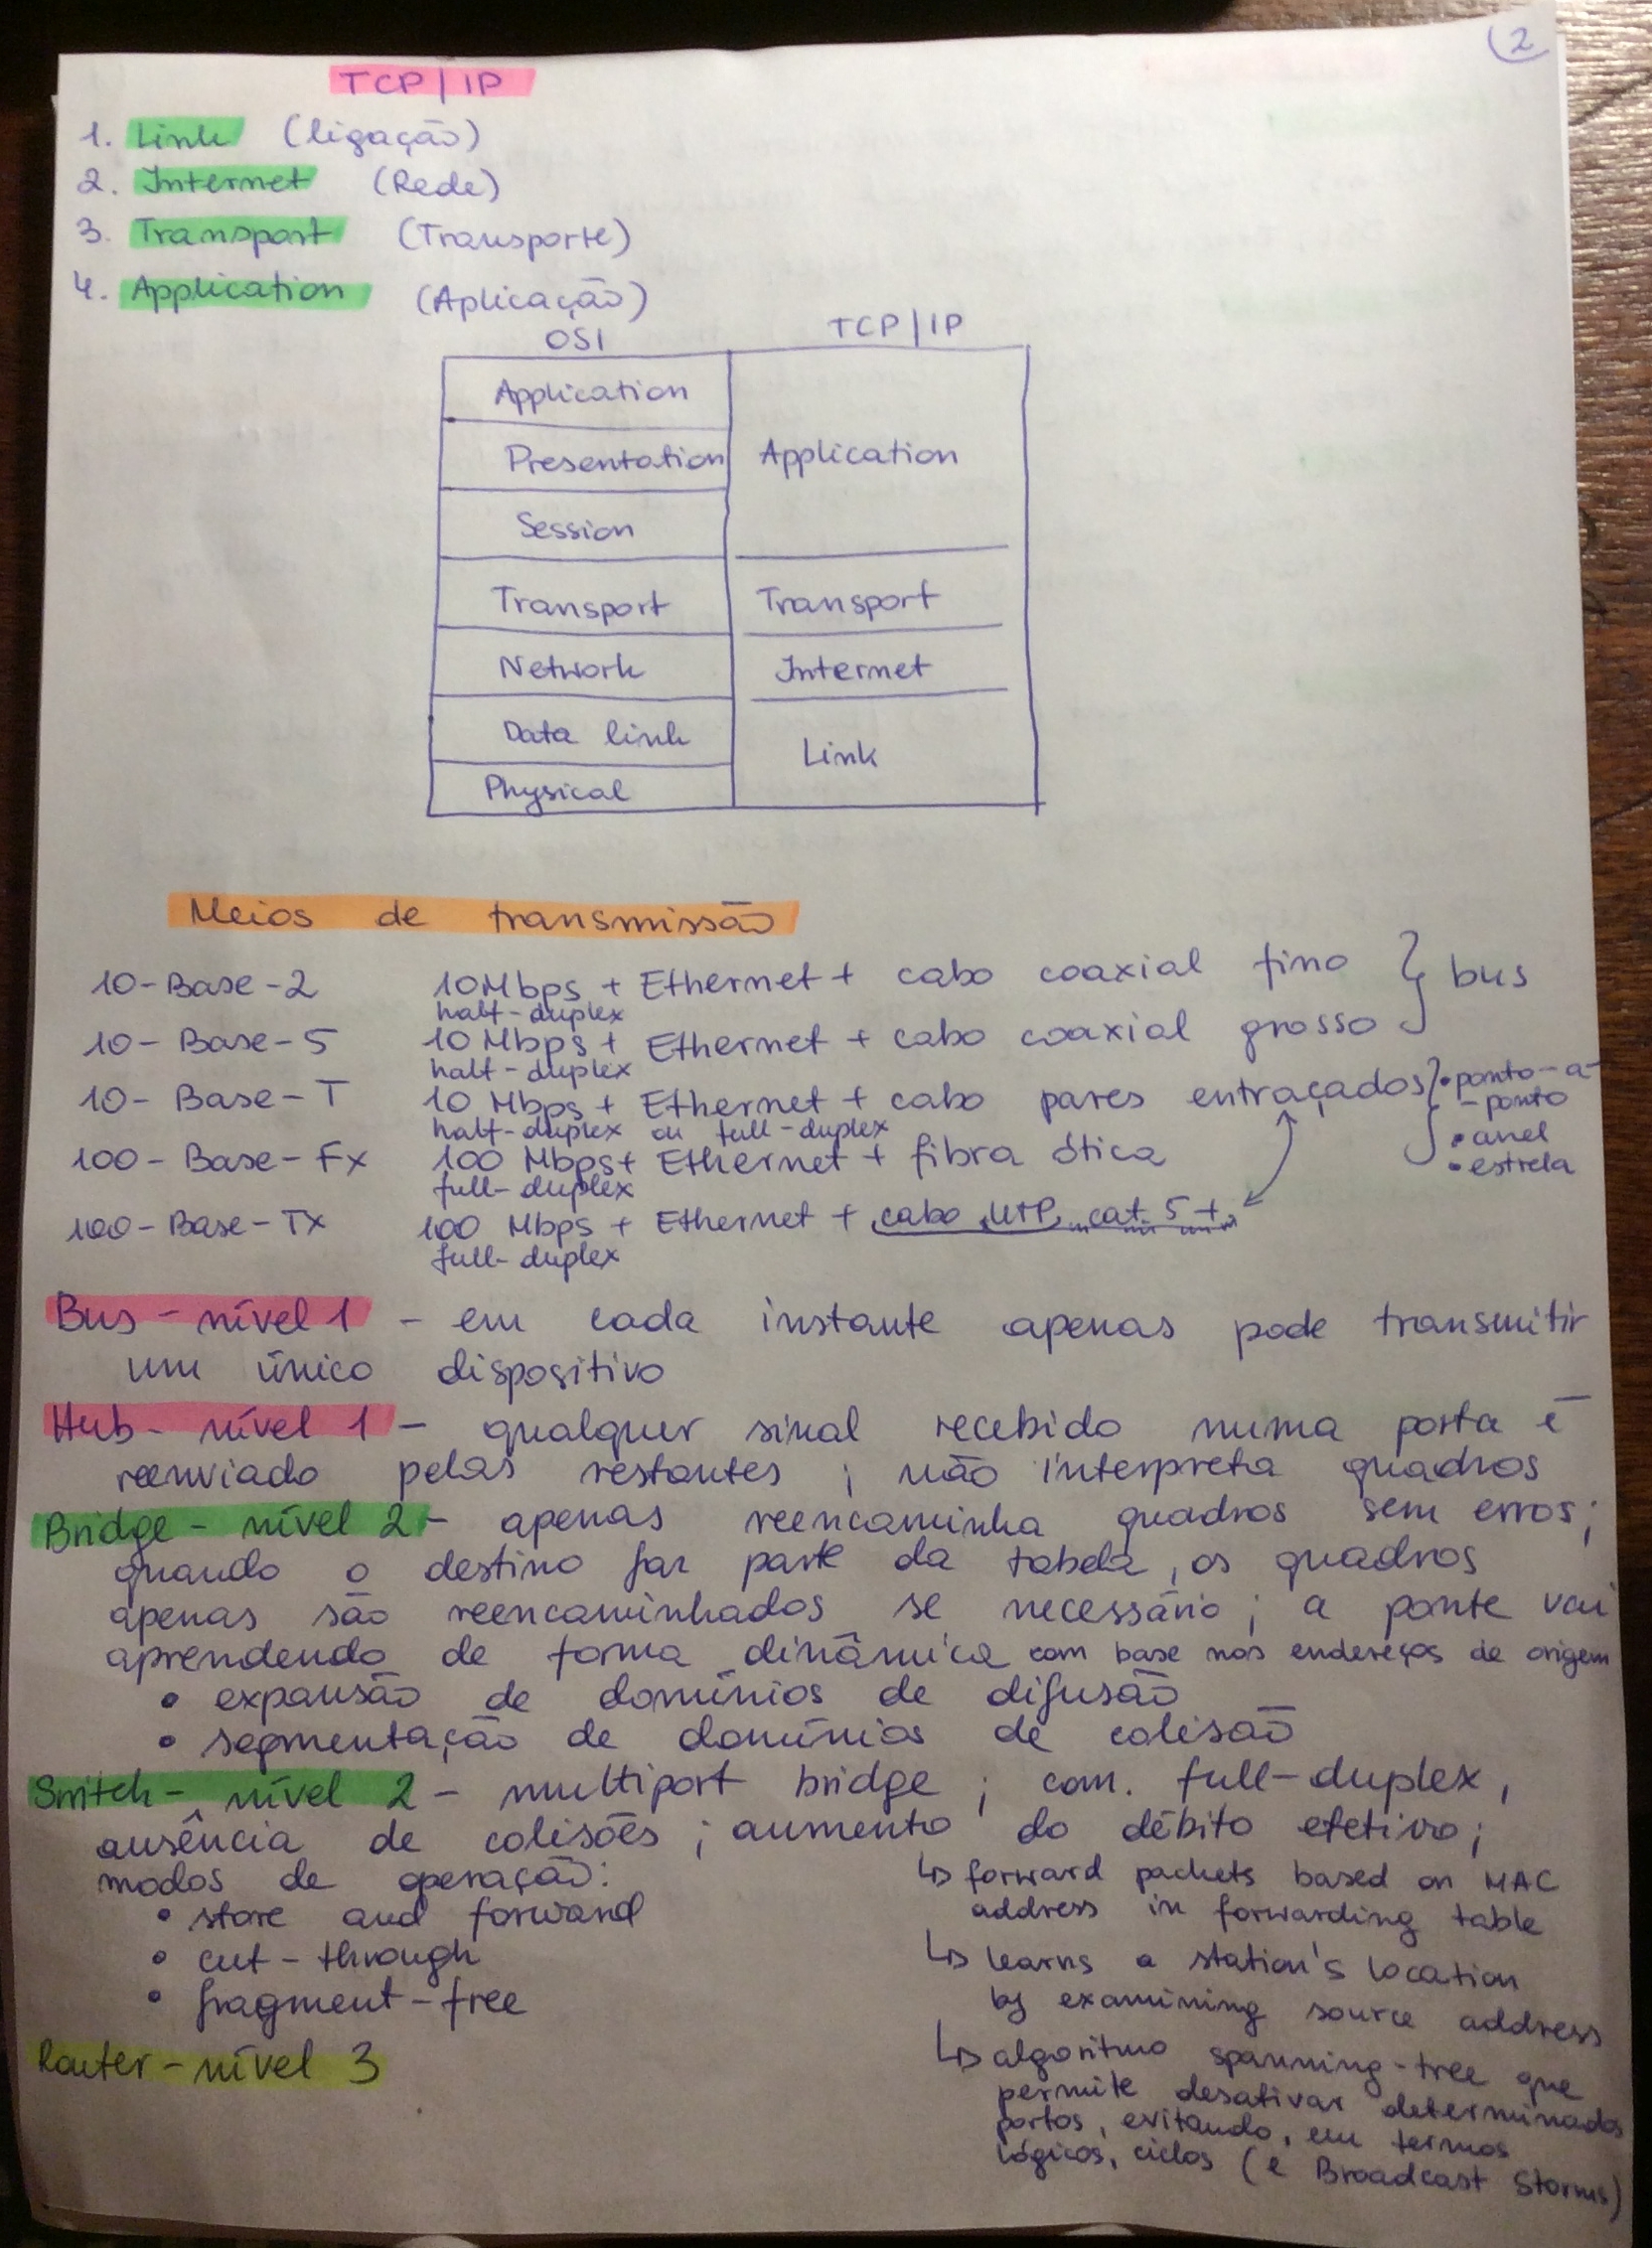 2
TCP/IP
1. Link (ligação)
2. Internet (Rede)
3. Transport (Transporte)
4. Application (Aplicação)
OSI TCP/IP
Application
Presentation Application
Session
Transport Transport
Network Internet
Data link
Link
Physical
Meios de transmissão
10-Base-2 10Mbps + Ethernet + cabo coaxial fino } bus
half-duplex
10-Base-5 10 Mbps + Ethernet + cabo coaxial grosso
half-duplex
10-Base-T 10 Mbps + Ethernet + cabo pares entraçados } • ponto-a-
-ponto
half-duplex ou full-duplex
• anel
100-Base-Fx 100 Mbps + Ethernet + fibra ótica
• estrela
full-duplex
100-Base-Tx 100 Mbps + Ethernet + cabo UTP cat 5+
full-duplex
Bus - nível 1 - em cada instante apenas pode transmitir
um único dispositivo
Hub - nível 1 - qualquer sinal recebido numa porta é
reenviado pelas restantes; não interpreta quadros
Bridge - nível 2 - apenas reencaminha quadros sem erros;
quando o destino faz parte da tabela, os quadros
apenas são reencaminhados se necessário; a ponte vai
aprendendo de forma dinâmica com base nos endereços de origem
• expansão de domínios de difusão
• segmentação de domínios de colisão
Switch - nível 2 - multiport bridge; com. full-duplex,
ausência de colisões; aumento do débito efetivo;
modos de operação:
• store and forward
• cut-through
• fragment-free
↳ forward packets based on MAC
address in forwarding table
↳ learns a station's location
by examining source address
↳ algoritmo spanning-tree que
permite desativar determinados
portos, evitando, em termos
lógicos, ciclos (e Broadcast Storms)
Router - nível 3